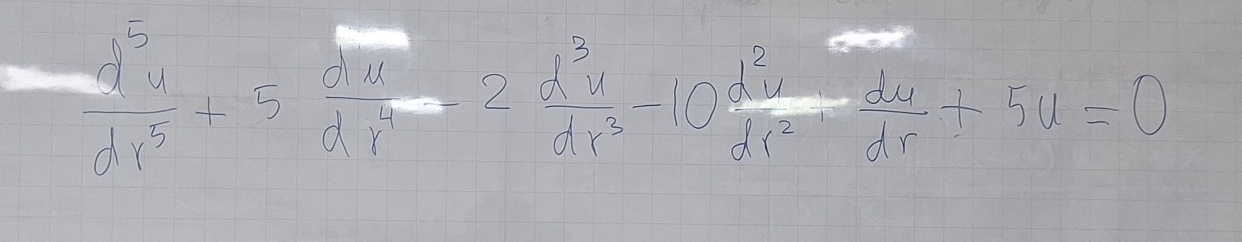 d⁵u/dr⁵ + 5 du/dr⁴ - 2 d³u/dr³ - 10 d²u/dr² + du/dr + 5u = 0